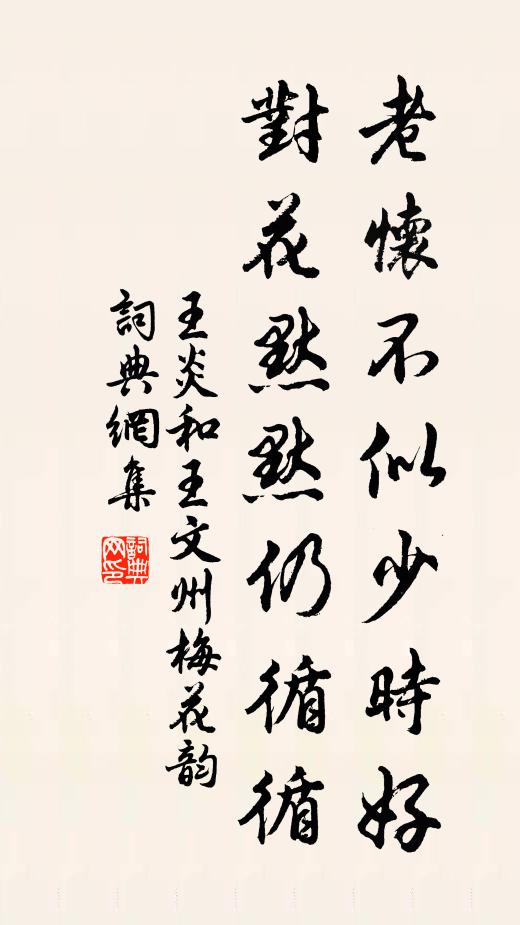 老懷不似少時好
對花默默仍循循
王炎和王文州梅花韵
詞典網集
詞典網印